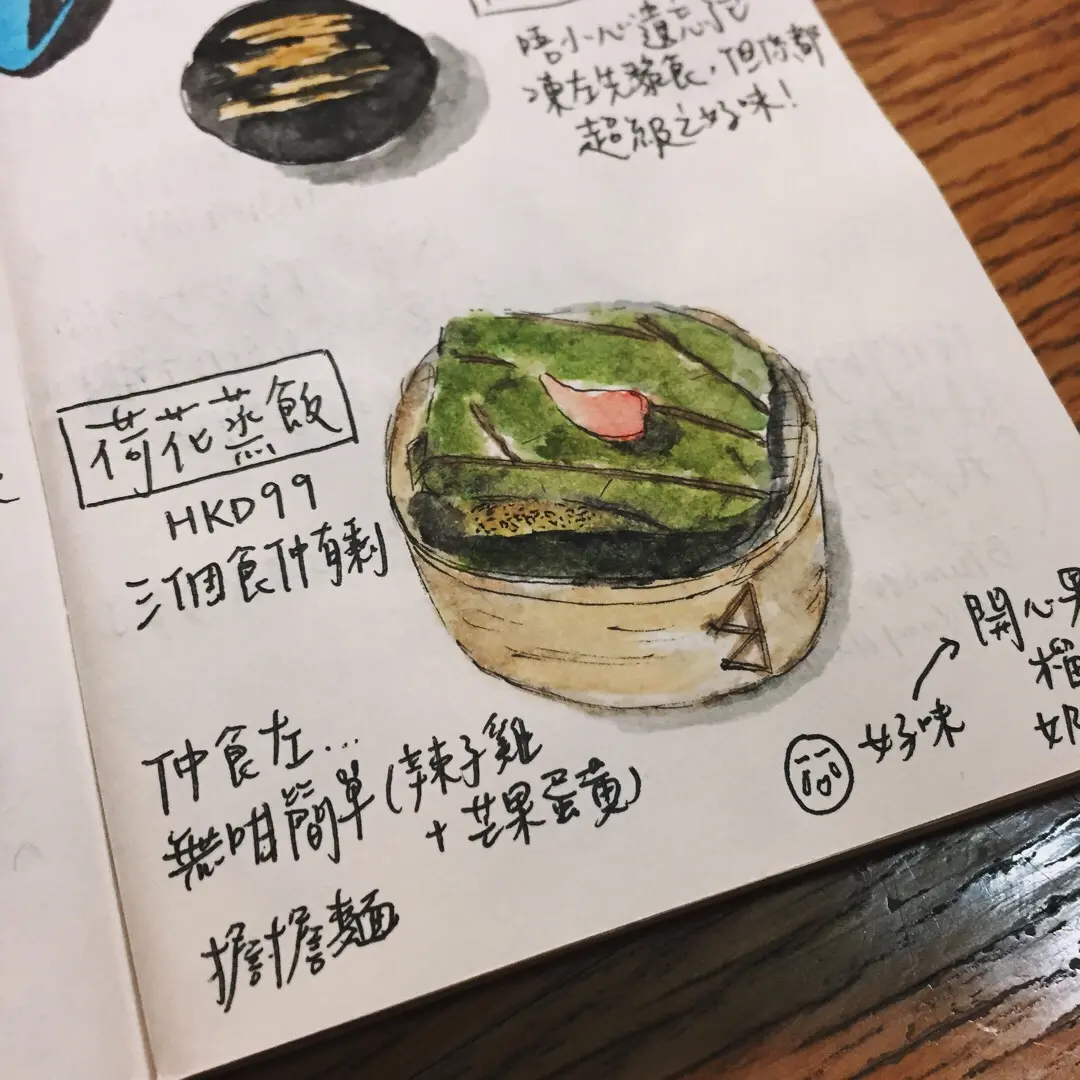 唔小心遺忘佢
凍左先黎食，但依都
超級之好味！
荷花蒸飯
HKD99
三個食仲有剩
開心果
榴
奶
好味
仲食左...
無咁簡單(辣子雞
+芒果蛋黄)
擔擔麵